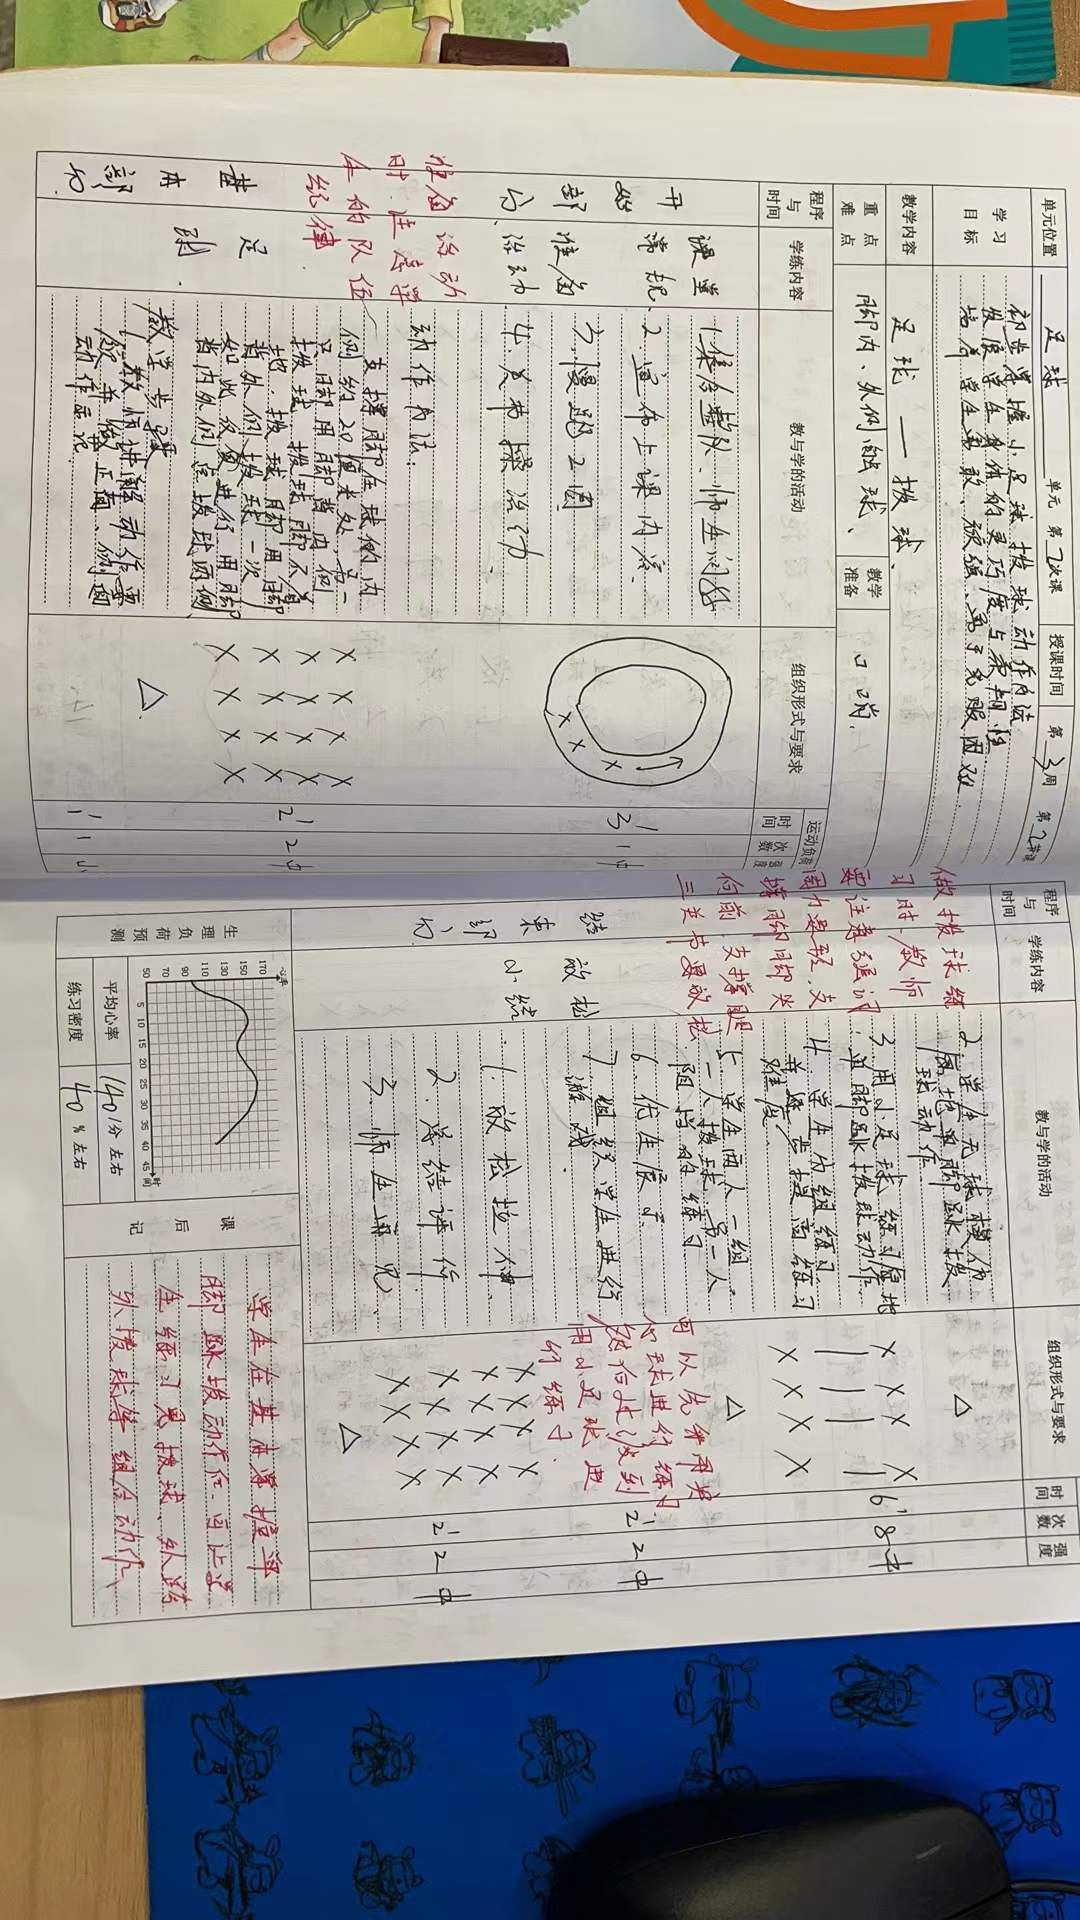 单元位置 足球 单元 第2次课 授课时间 第3周 第2节课
学习目标
初步掌握小足球拨球动作方法
发展学生身体的灵巧度与柔韧性
培养学生勇敢、顽强、勇于克服困难
教学内容 足球 — 拨球、
重点难点 脚内、外侧触球、 教学准备 口哨.
程序与时间 学练内容 教与学的活动 组织形式与要求 运动负荷
时间 次数 强度
开始部分
课堂常规
准备活动
1.集合整队、师生问好
2.宣布上课内容、
3.慢跑2圈
4.关节操活动
3' 1 中
准备活动
时,注意学
生的队伍
纪律.
基本部分
足球.
动作方法:
支撑脚在球的内
侧约20厘米处,另一
只脚用脚背内侧
拨球,拨球脚不着
地,拨球脚用脚
背外侧拨球一次
如此反复进行用脚
背内外侧点拨球两侧、
2' 2 中
教学步骤
1.教师讲解动作要
领并做正面、侧面
动作示范
1' 1 小
程序与时间 学练内容 教与学的活动 组织形式与要求 时间 次数 强度
做拨球练
习时,教师
要注意强调
用力要轻,支
撑脚脚尖
向前,支撑腿
三关节要放松
2.学生无球模仿
原地单脚跳拨
球动作.
3.用小足球练习原地
单脚跳拨球动作.
4.学生分组练习.
并逐步提高练习
难度.
5.学生两人一组.
一人拨球,另一人
阻挡的练习.
6.优生展示.
7.组织学生进行
游戏.
6' 8 中
可以先采用实
心球进行练习.
然后过渡到
用小足球进
行练习.
2' 2 中
结束部分
放松
小结
1.放松拉伸.
2.总结评价.
3.师生再见.
2' 2 中
生理负荷预测
心率
170
150
130
110
90
70
50
5 10 15 20 25 30 35 40 45 时间
平均心率 140 1分 左右
练习密度 40 % 左右
课后记
学生在基本掌握单
脚跳拨动作后,可让学
生练习 拨球、外跨
外拨球等组合动作、